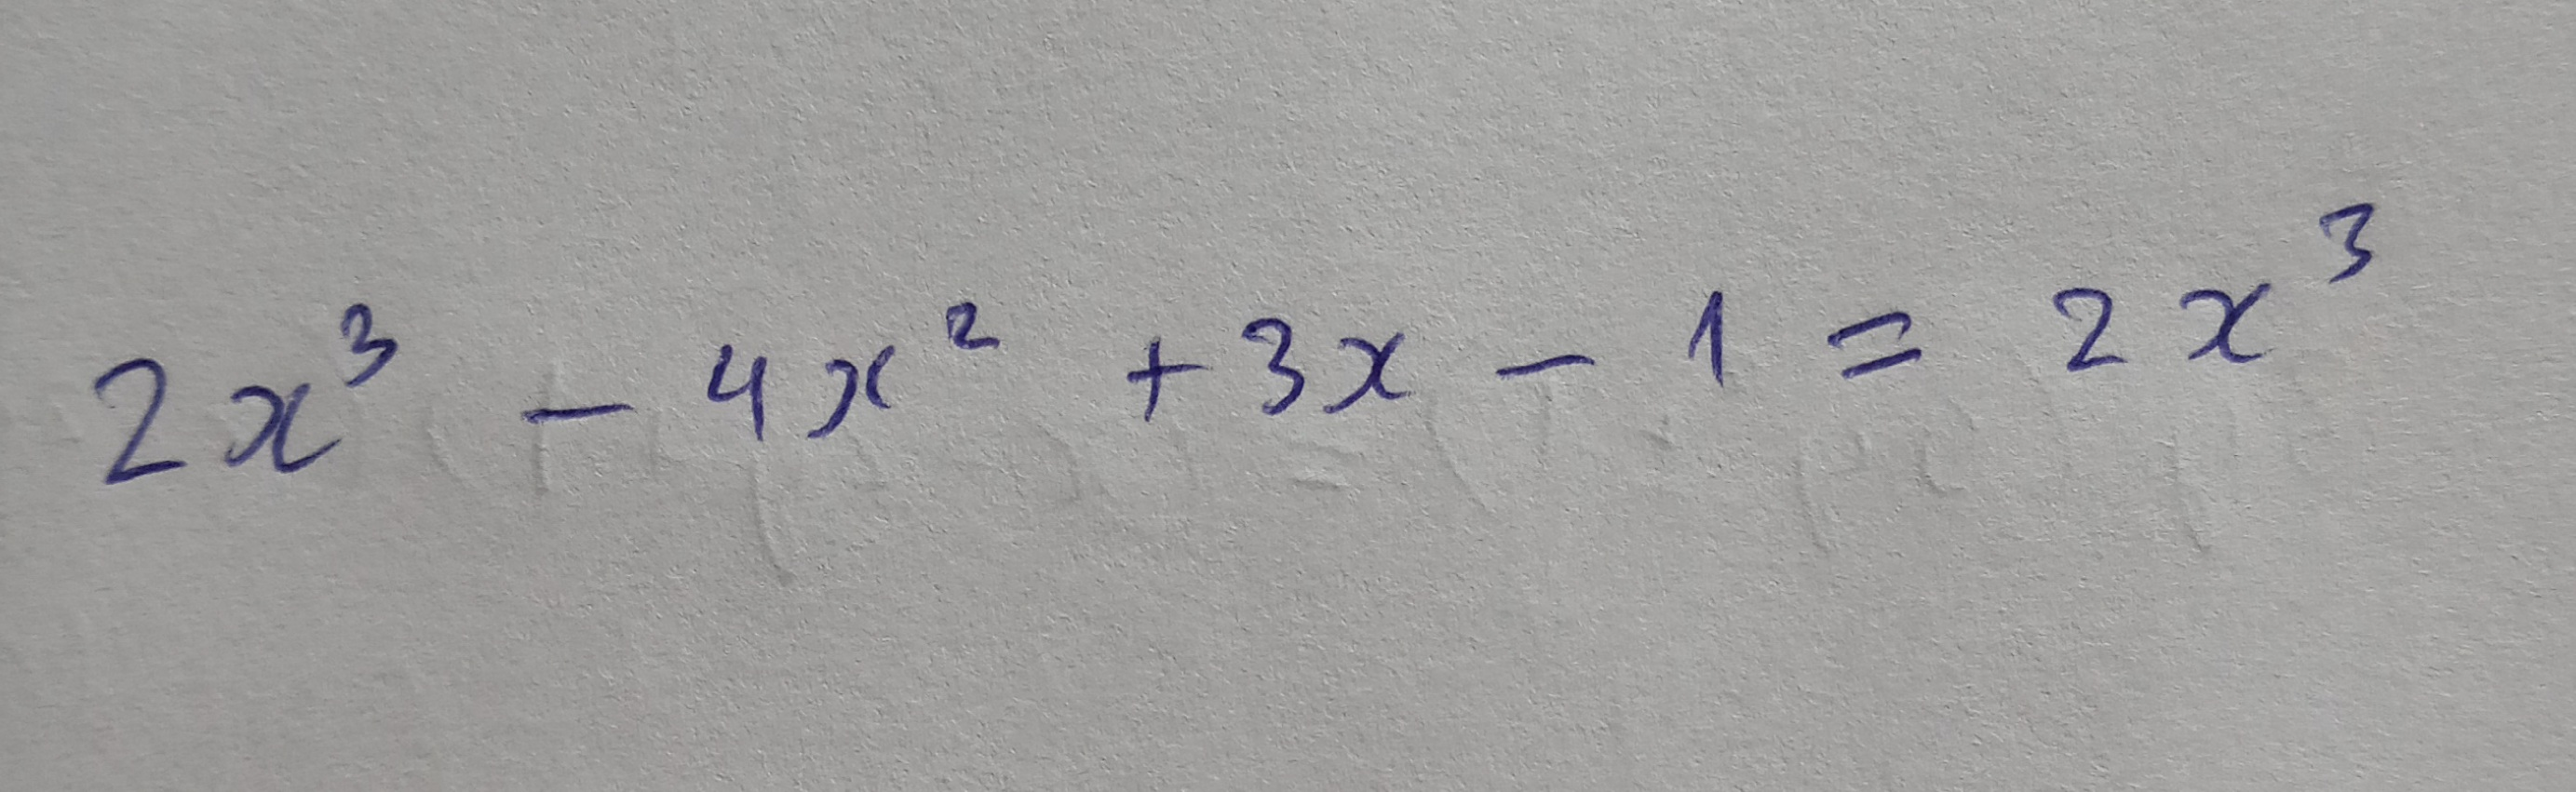 2x³ - 4x² + 3x - 1 = 2x³